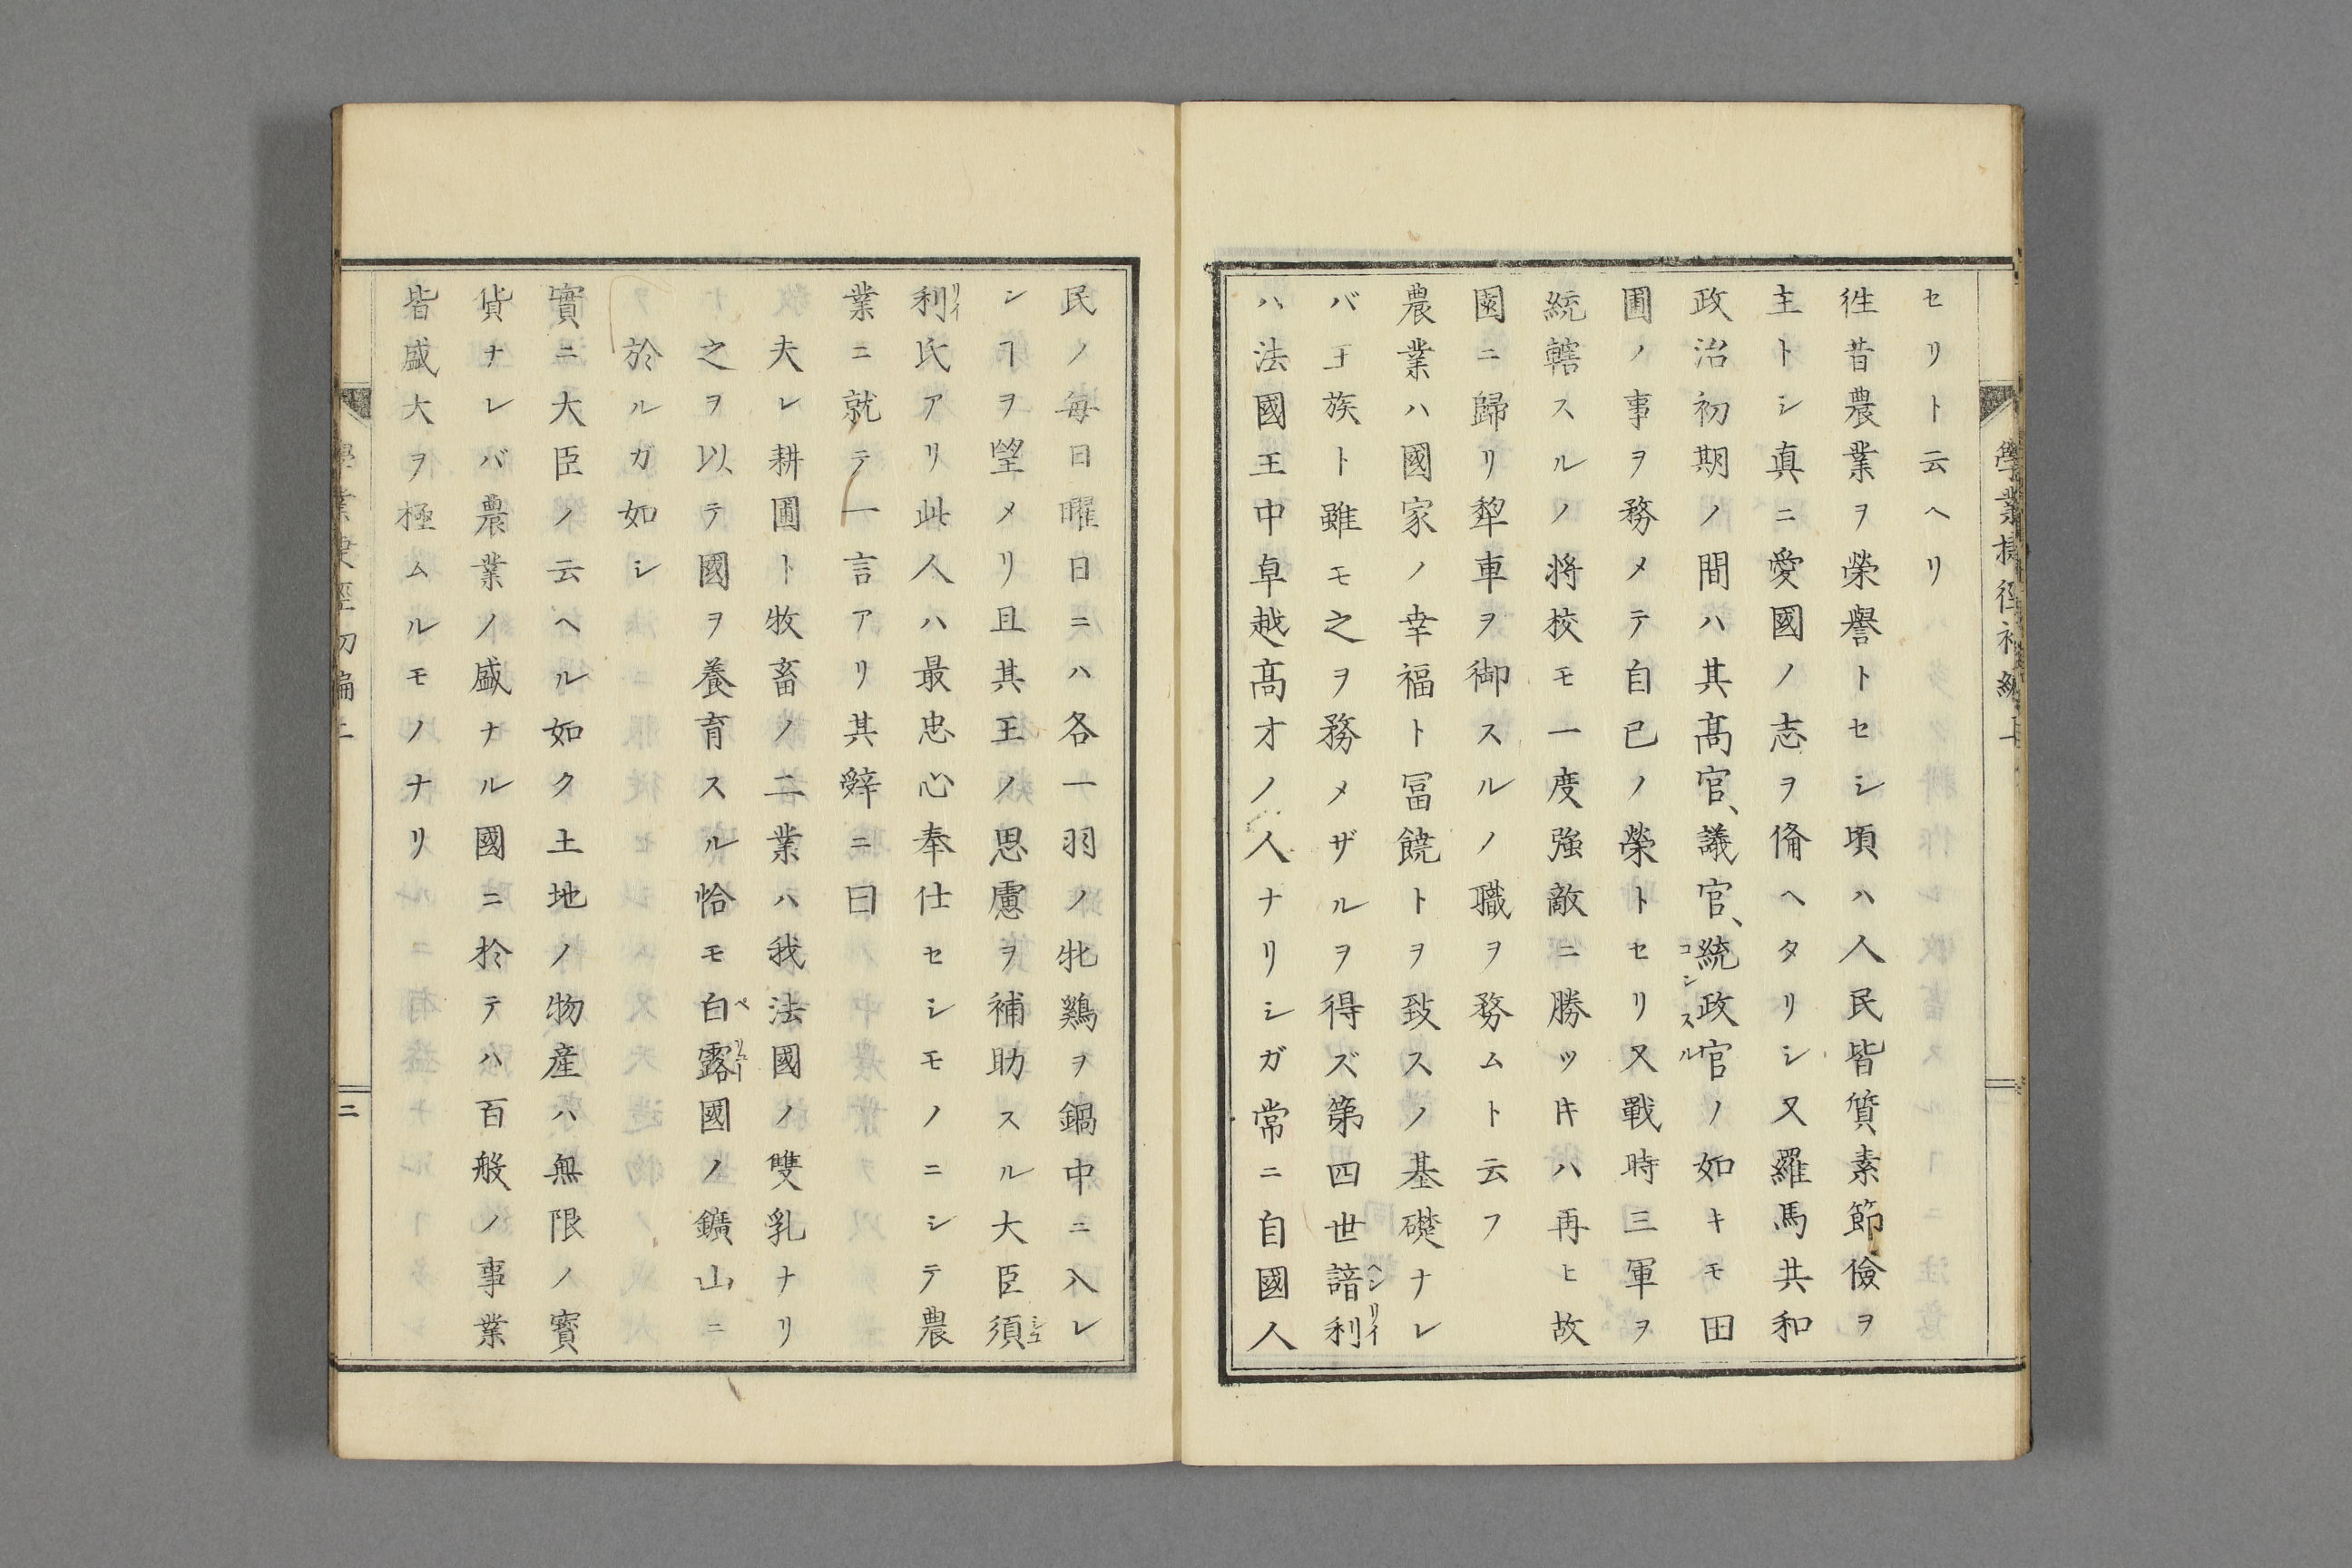 セリト云ヘリ
徃昔農業ヲ榮譽トセシ頃ハ人民皆質素節儉ヲ
主トシ真ニ愛國ノ志ヲ俻ヘタリシ又羅馬共和
政治初期ノ間ハ其髙官、議官、統政官ノ如キモ田
コンスル
圃ノ事ヲ務メテ自己ノ榮トセリ又戰時三軍ヲ
統轄スルノ将校モ一度強敵ニ勝ツ𪜈ハ再ヒ故
園ニ歸リ犂車ヲ御スルノ職ヲ務ムト云フ
農業ハ國家ノ幸福ト冨饒トヲ致スノ基礎ナレ
バ王族ト雖モ之ヲ務メザルヲ得ズ第四世諳利
ヘンリイ
ハ法國王中卓越髙才ノ人ナリシガ常ニ自國人
民ノ毎日曜日ニハ各一羽ノ牝鷄ヲ鍋中ニ入レ
シヿヲ望メリ且其王ノ思慮ヲ補助スル大臣須
シユ
利氏アリ此人ハ最忠心奉仕セシモノニシテ農
リイ
業ニ就テ一言アリ其辤ニ曰
夫レ耕圃ト牧畜ノ二業ハ我法國ノ雙乳ナリ
之ヲ以テ國ヲ養育スル恰モ白露國ノ鑛山ニ
ペリユー
於ルガ如シ
實ニ大臣ノ云ヘル如ク土地ノ物産ハ無限ノ寳
貨ナレバ農業ノ盛ナル國ニ於テハ百般ノ事業
皆盛大ヲ極ムルモノナリ
二